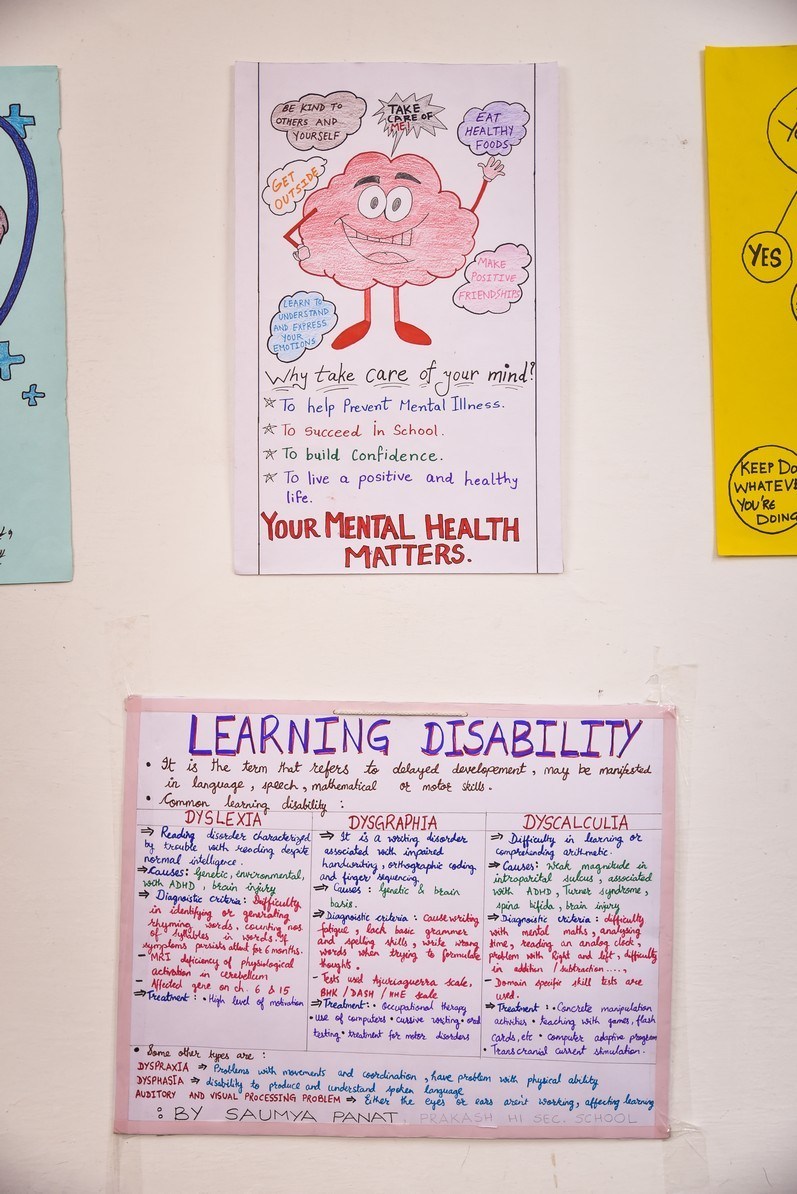 BE KIND TO
OTHERS AND
YOURSELF
TAKE
CARE OF
ME!
EAT
HEALTHY
FOODS
GET
OUTSIDE
MAKE
POSITIVE
FRIENDSHIPS
LEARN TO
UNDERSTAND
AND EXPRESS
YOUR
EMOTIONS
Why take care of your mind?
To help Prevent Mental Illness.
To Succeed in School.
To build Confidence.
To live a positive and healthy
life.
YOUR MENTAL HEALTH
MATTERS.
YES
KEEP DO
WHATEVE
YOU'RE
DOING
LEARNING DISABILITY
• It is the term that refers to delayed developement, may be manifested
in language, speech, mathematical or motor skills.
• Common learning disability :
DYSLEXIA
⇒ Reading disorder characterized
by trouble with reading despite
normal intelligence.
⇒ Causes: Genetic, environmental,
with ADHD, brain injury
⇒ Diagnostic criteria: Difficulty
in identifying or generating
rhyming words, counting nos.
of syllables in words. If
symptoms persists atleast for 6 months.
- MRI deficiency of physiological
activation in cerebellum
- Affected gene on ch. 6 & 15
⇒ Treatment: • High level of motivation
DYSGRAPHIA
⇒ It is a writing disorder
associated with impaired
handwriting, orthographic coding
and finger sequencing.
⇒ Causes : Genetic & brain
basis.
⇒ Diagnostic criteria : cause writing
fatigue, lack basic grammar
and spelling skills, write wrong
words when trying to formulate
thoughts.
- Tests used Ajuriaguerra scale,
BHK / DASH / HHE scale
⇒ Treatment: • Occupational therapy
• use of computers • cursive writing • oral
testing • treatment for motor disorders
DYSCALCULIA
⇒ Difficulty in learning or
comprehending arithmetic.
⇒ Causes: Weak magnitude in
intraparital sulcus, associated
with ADHD, Turner syndrome,
spina bifida, brain injury
⇒ Diagnostic criteria: difficulty
with mental maths, analysing
time, reading an analog clock,
problem with Right and left, difficulty
in addition / subtraction ....,
- Domain specific skill tests are
used.
⇒ Treatment : • Concrete manipulation
activities • teaching with games, flash
cards, etc • computer adaptive program
• Transcranial current stimulation.
• Some other types are :
DYSPRAXIA ⇒ Problems with movements and coordination, have problem with physical ability
DYSPHASIA ⇒ disability to produce and understand spoken language
AUDITORY AND VISUAL PROCESSING PROBLEM ⇒ Either the eyes or ears aren't working, affecting learning
: BY SAUMYA PANAT. PRAKASH HI SEC. SCHOOL